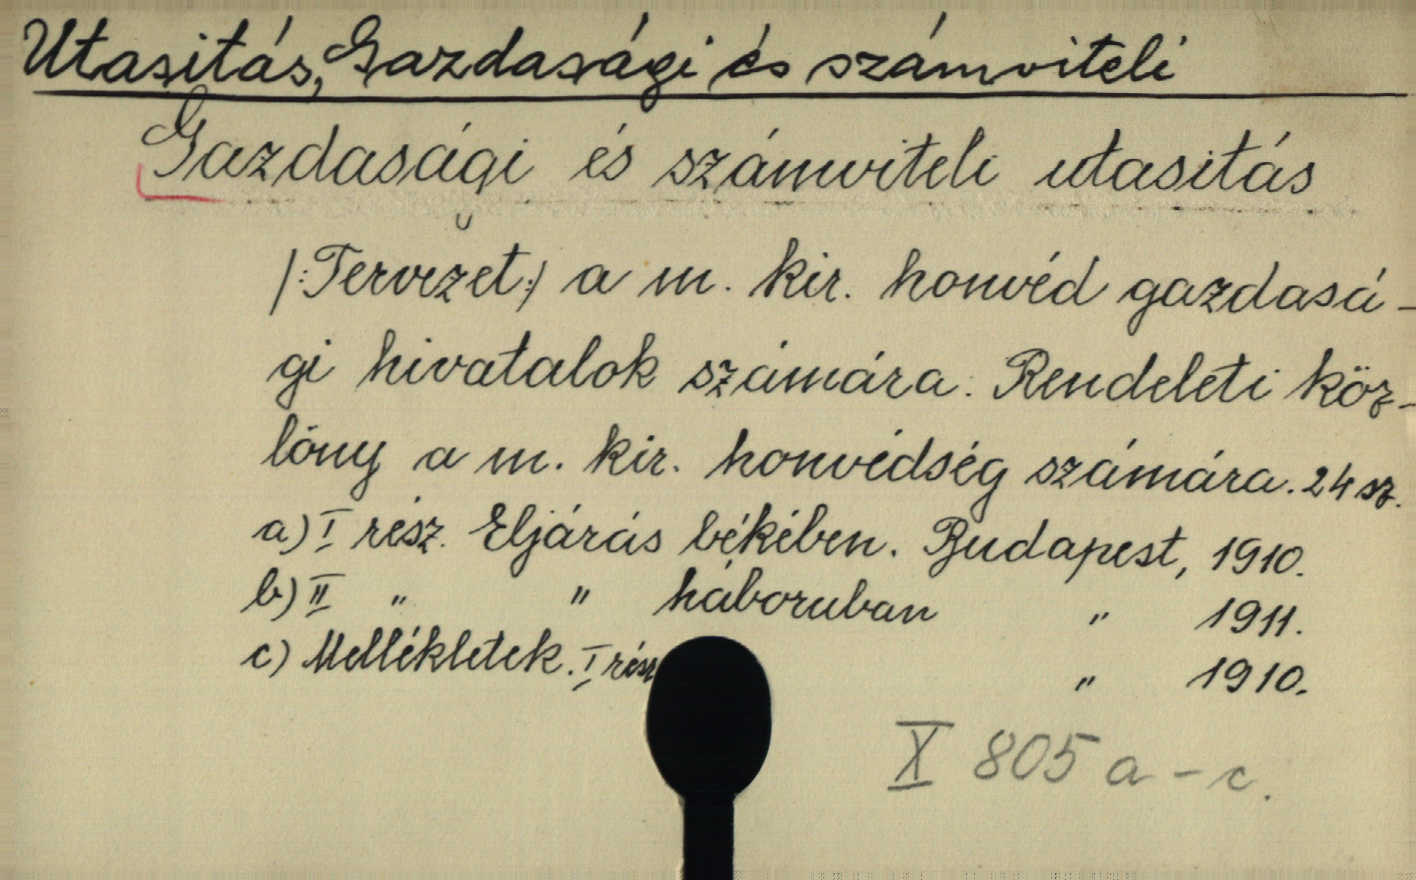 Utasitás, Gazdasági és számviteli
Gazdasági és számviteli utasitás
/:Tervezet:/ a m. kir. honvéd gazdasá-
gi hivatalok számára. Rendeleti köz-
löny a m. kir. honvédség számára. 24 sz.
a) I rész. Eljárás békében. Budapest, 1910.
b) II " " háboruban " 1911.
c) Mellékletek. I rész " 1910.
X 805 a-c.